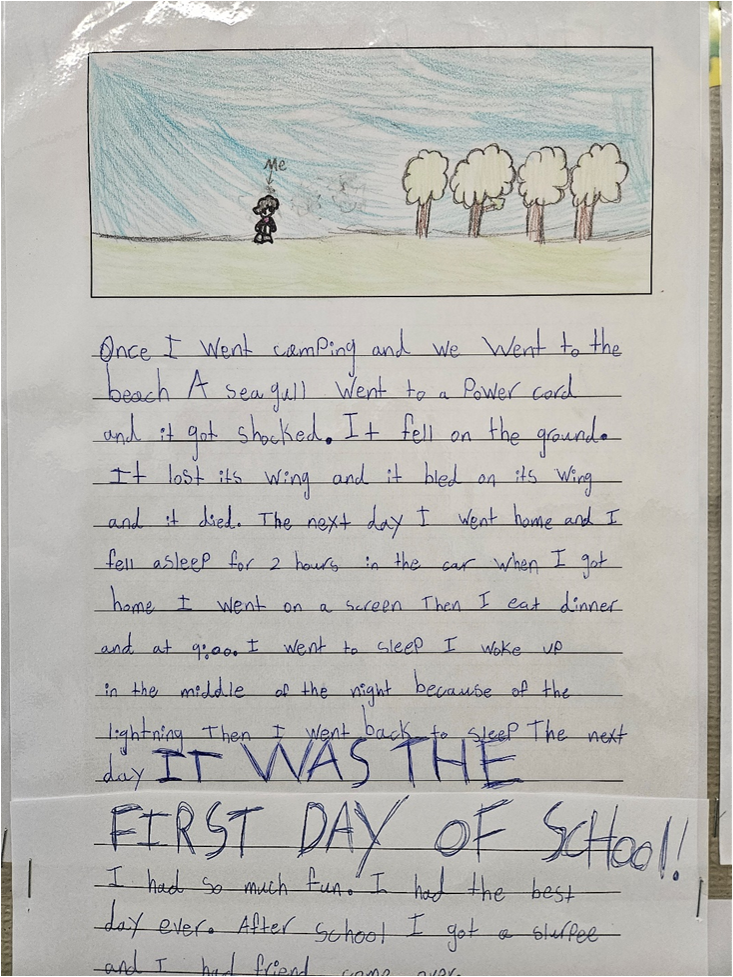 Me
Once I went camping and we went to the
beach A seagull went to a power cord
and it got shocked. It fell on the ground.
It lost its wing and it bled on its wing
and it died. The next day I went home and I
fell asleep for 2 hours in the car when I got
home I went on a screen Then I eat dinner
and at 9:00. I went to sleep I woke up
in the middle of the night because of the
lightning Then I went back to sleep The next
day IT WAS THE
FIRST DAY OF SCHOOL!
I had so much fun. I had the best
day ever. After school I got a slurpee
and I had friend come over.